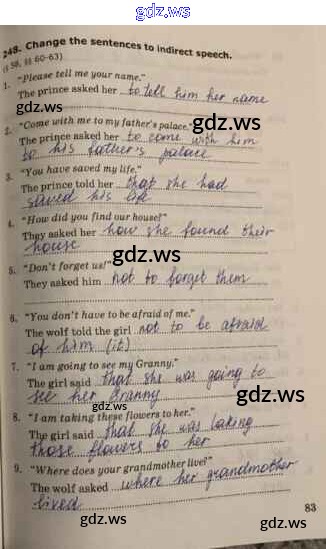 gdz.ws
248. Change the sentences to indirect speech.
(§ 59, §§ 60-63)
1. "Please tell me your name."
The prince asked her to tell him her name
2. "Come with me to my father's palace."
The prince asked her to come with him
to his father's palace
3. "You have saved my life."
The prince told her that she had
saved his life
4. "How did you find our house?"
They asked her how she found their
house
5. "Don't forget us!"
They asked him not to forget them
6. "You don't have to be afraid of me."
The wolf told the girl not to be afraid
of him (it)
7. "I am going to see my Granny."
The girl said that she was going to
see her Granny
8. "I am taking these flowers to her."
The girl said that she was taking
those flowers to her
9. "Where does your grandmother live?"
The wolf asked where her grandmother
lived
83
gdz.ws
gdz.ws
gdz.ws
gdz.ws
gdz.ws
gdz.ws